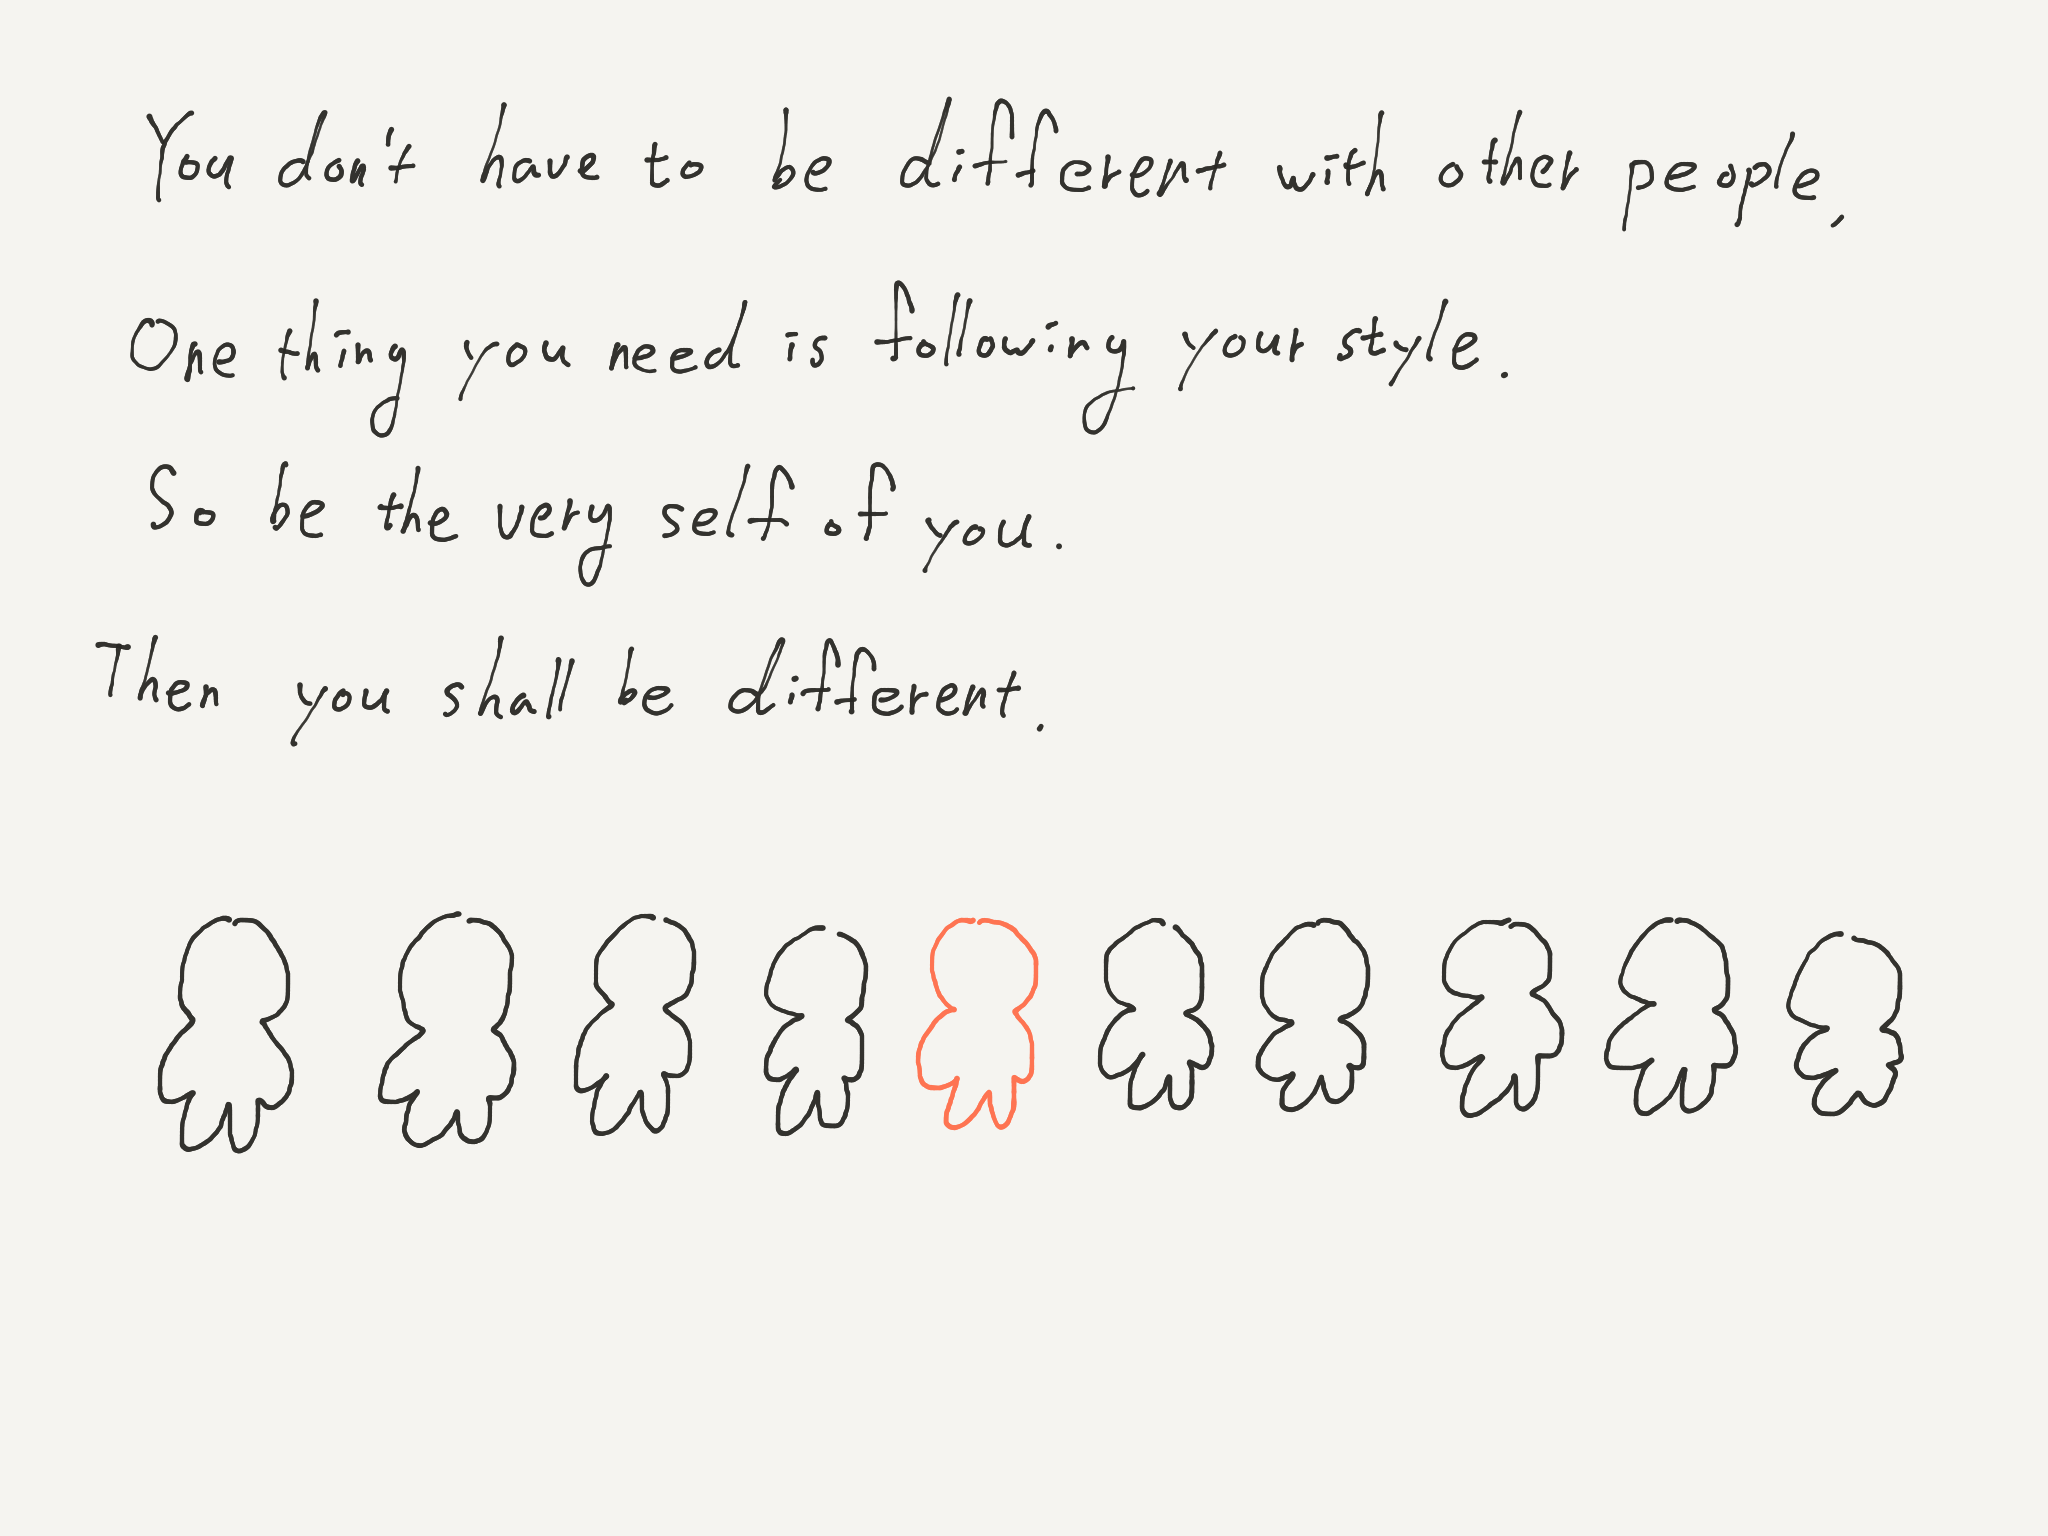 You don't have to be different with other people,
One thing you need is following your style.
So be the very self of you.
Then you shall be different.